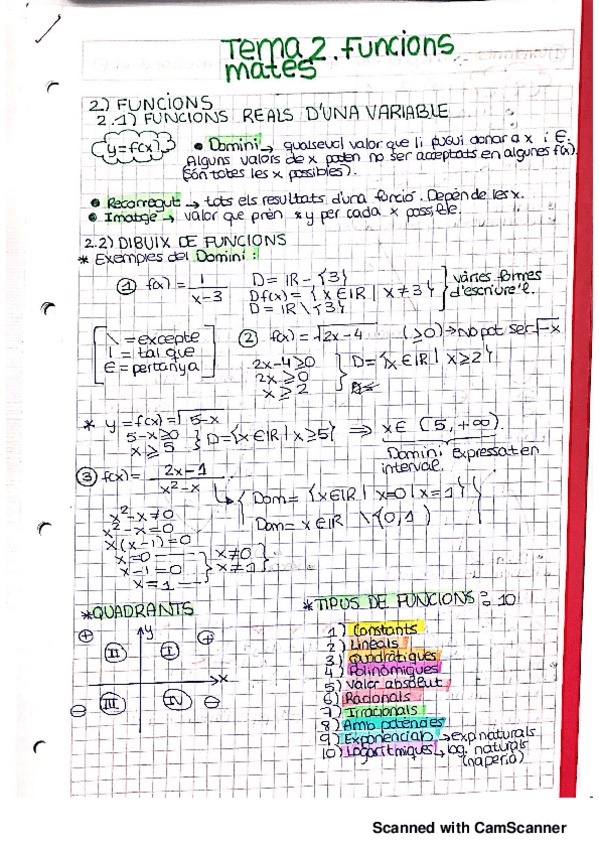 Tema 2. Funcions
mates
2) FUNCIONS
2.1) FUNCIONS REALS D'UNA VARIABLE
y=f(x)
• Domini → qualsevol valor que li pugui donar a x i E.
Alguns valors de x poden no ser acceptats en algunes f(x).
(són totes les x possibles).
• Recorregut → tots els resultats d'una funció. Depèn de les x.
• Imatge → valor que pren x y per cada x possible.
2.2) DIBUIX DE FUNCIONS
* Exemples del Domini:
① f(x) = 1/(x-3)
D = IR - {3}
Df(x) = { x ∈ IR | x ≠ 3 }
D = IR \ {3}
vàries formes
d'escriure'l.
\ = excepte
| = tal que
∈ = pertanya
② f(x) = √2x-4 (≥0) → no pot ser √-x
2x-4≥0
2x ≥0
x ≥ 2
D = {x ∈ IR | x ≥ 2}
* y = f(x) = √5-x
5-x≥0
x ≥ 5
D={x∈IR | x≥5} ⇒ x∈ (5,+∞).
Domini Expressat en
interval.
③ f(x) = (2x-1)/(x²-x)
Dom = {x∈IR | x=0 | x=1}
Dom = x∈IR \ {0,1)
x²-x≠0
x²-x=0
x(x-1)=0
x=0
x-1=0
x=1
x≠0
x≠1
*QUADRANTS
+ y +
II I
x
III IV
⊖ ⊖
*TIPUS DE FUNCIONS: 10
1) Constants
2) Lineals
3) Quadràtiques
4) Polinòmiques
5) Valor absolut
6) Racionals
7) Irracionals
8) Amb potències
9) Exponencials → exp naturals
10) Logarítmiques → log. naturals
(naperià)
Scanned with CamScanner